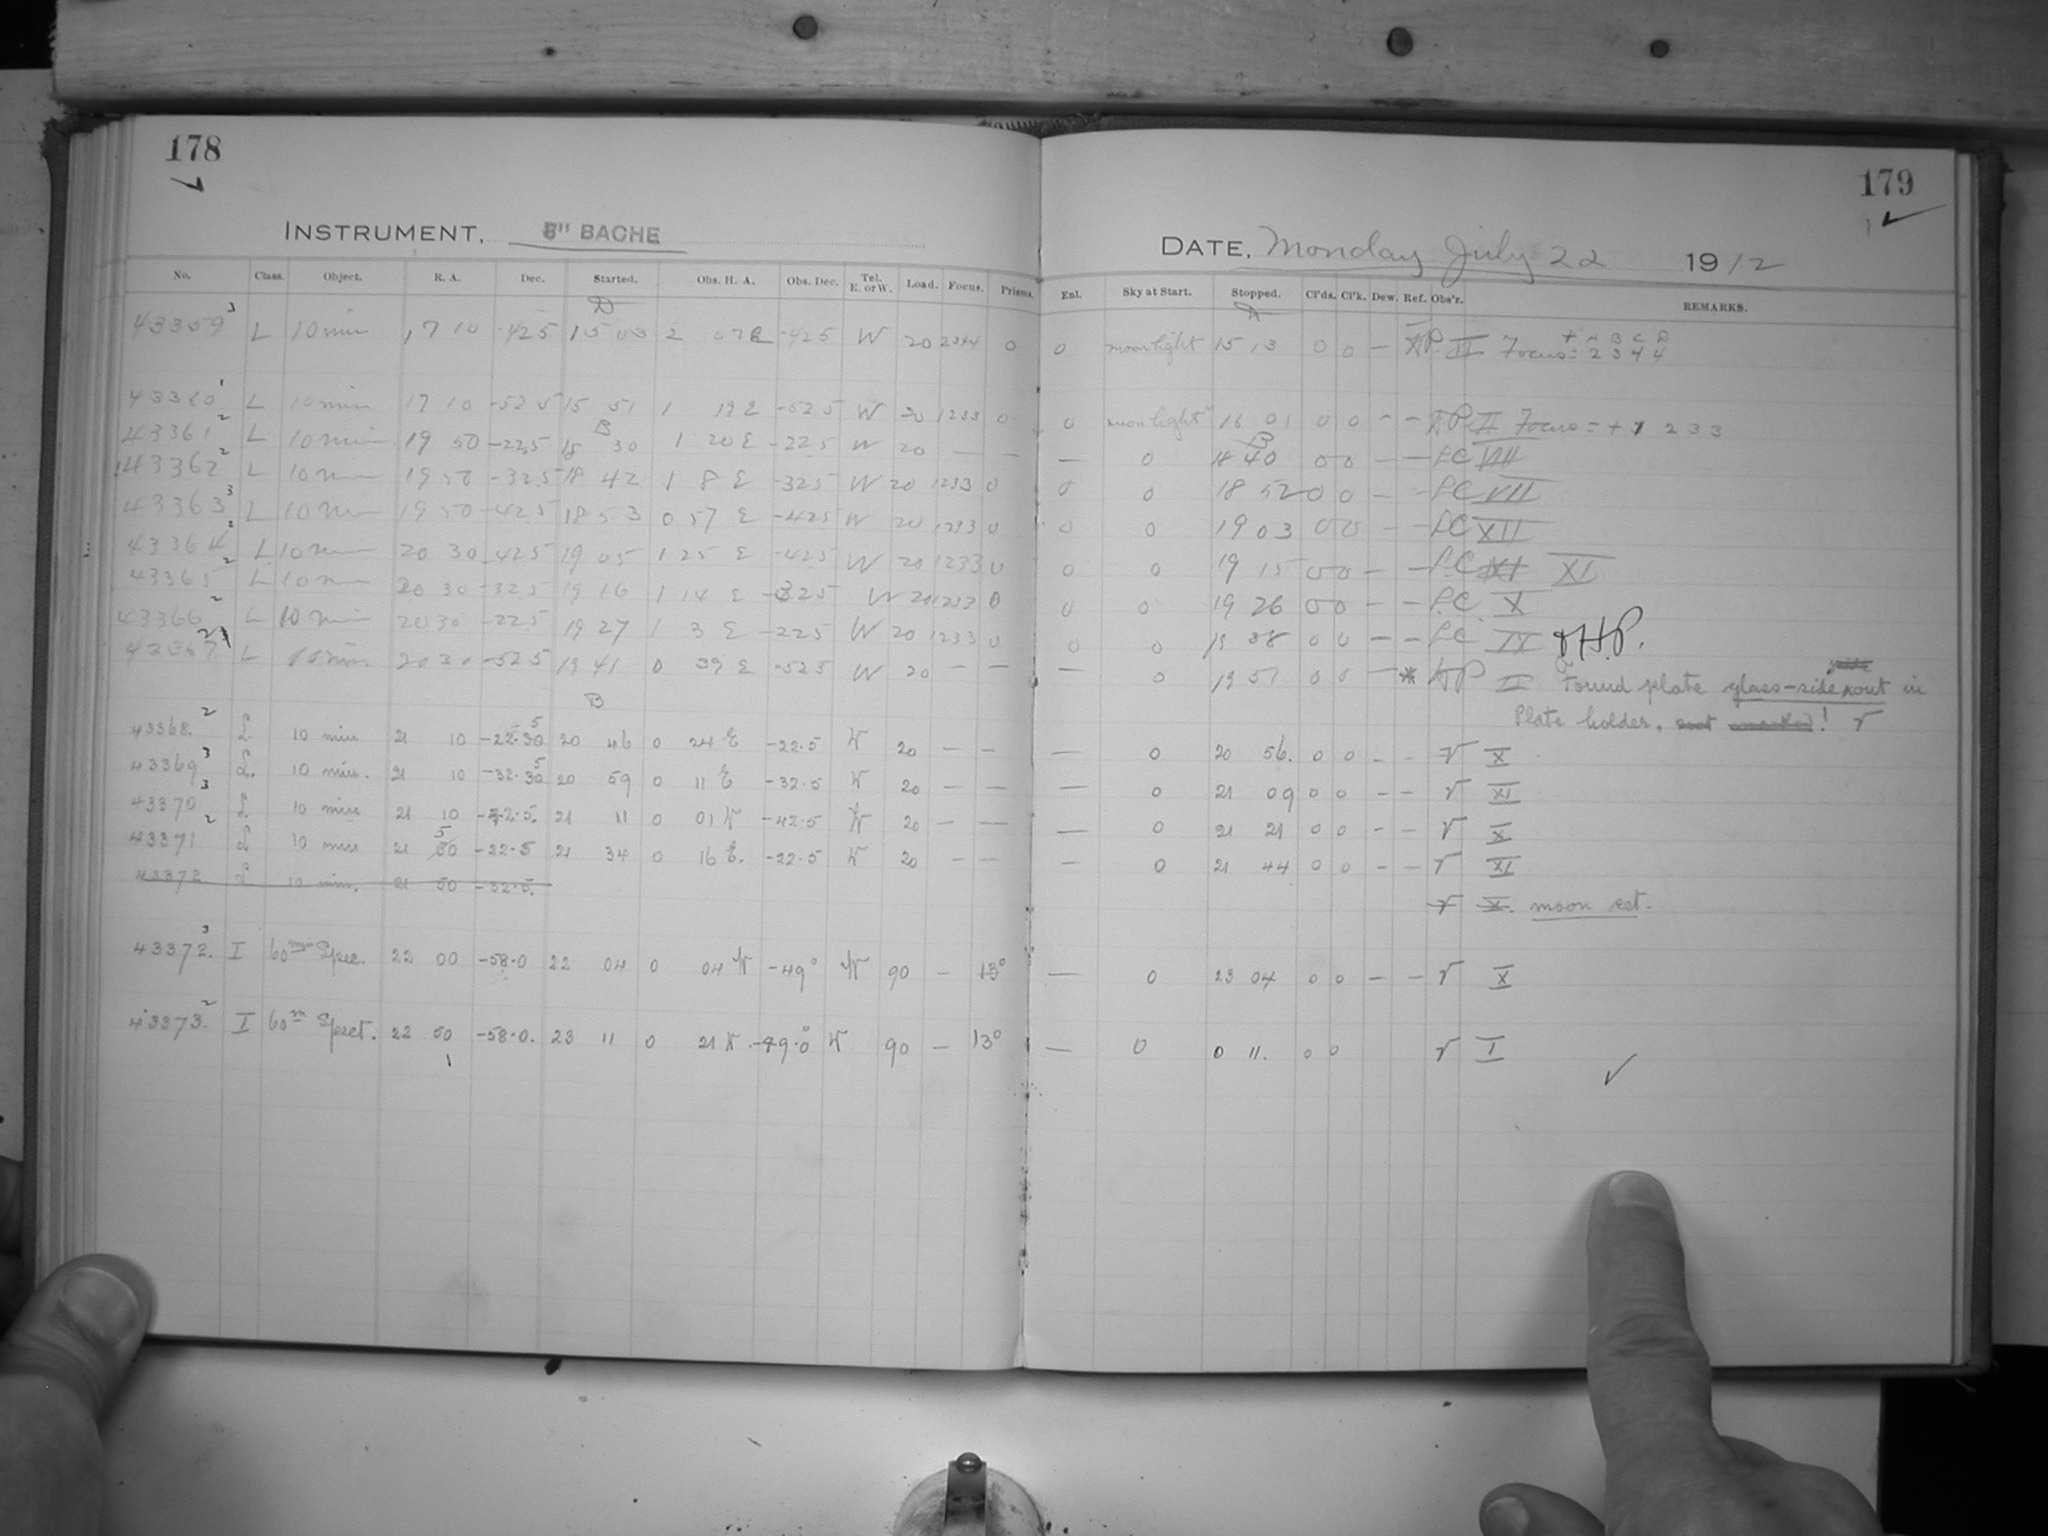 178
179
INSTRUMENT. 8" BACHE
DATE. Monday July 22 1912
No. Class. Object. R. A. Dec. Started. Obs. H. A. Obs. Dec. Tel. E. or W. Load. Focus. Prisms. Enl. Sky at Start. Stopped. Cl'ds. Cl'k. Dew. Ref. Obs'r. REMARKS.
43359 3 L 10 min 17 10 -42.5 15 03 2 07 E -42.5 W 20 2344 0 0 moonlight 15 13 0 0 - II Focus = + A B C D 2 3 4 4
43360 1 L 10 min 17 10 -52.5 15 51 1 19 E -52.5 W 20 1233 0 0 moonlight 16 01 0 0 - - II Focus = + 1 2 3 3
43361 2 L 10 min 19 50 -22.5 18 30 1 20 E -22.5 W 20 - - - 0 18 40 0 0 - - LC VIII
43362 2 L 10 min 19 50 -32.5 18 42 1 8 E -32.5 W 20 1233 0 0 0 18 52 0 0 - - LC VII
43363 3 L 10 min 19 50 -42.5 18 53 0 57 E -42.5 W 20 1233 0 0 0 19 03 0 0 - - LC XII
43364 2 L 10 min 20 30 -42.5 19 05 1 25 E -42.5 W 20 1233 0 0 0 19 15 0 0 - - LC XI XI
43365 2 L 10 min 20 30 -32.5 19 16 1 14 E -32.5 W 20 1233 0 0 0 19 26 0 0 - - LC X
43366 2 L 10 min 20 30 -22.5 19 27 1 3 E -22.5 W 20 1233 0 0 0 19 38 0 0 - - LC IX H.P.
43367 2 L 10 min 20 30 -52.5 19 41 0 39 E -52.5 W 20 - - - 0 19 51 0 0 - * II Found plate glass-side out in
Plate holder. not marked!
43368. 2 L 10 min 21 10 -22.5 20 46 0 24 E -22.5 W 20 - - - 0 20 56. 0 0 - - X
43369 3 L. 10 min. 21 10 -32.5 20 59 0 11 E -32.5 W 20 - - - 0 21 09 0 0 - - XI
43370 3 L 10 min 21 10 -42.5. 21 11 0 01 W -42.5 W 20 - - - 0 21 21 0 0 - - X
43371 2 L 10 min 21 50 -22.5 21 34 0 16 E. -22.5 W 20 - - - 0 21 44 0 0 - - XI
43372 L 10 min. 21 50 -32.5. X. moon set.
43372. 3 I 60 min Spec. 22 00 -58.0 22 04 0 04 W -49° W 90 - 13° - 0 23 04 0 0 - - X
43373. 2 I 60 m Spect. 22 50 -58.0. 23 11 0 21 W -49.0° W 90 - 13° - 0 0 11. 0 0 I